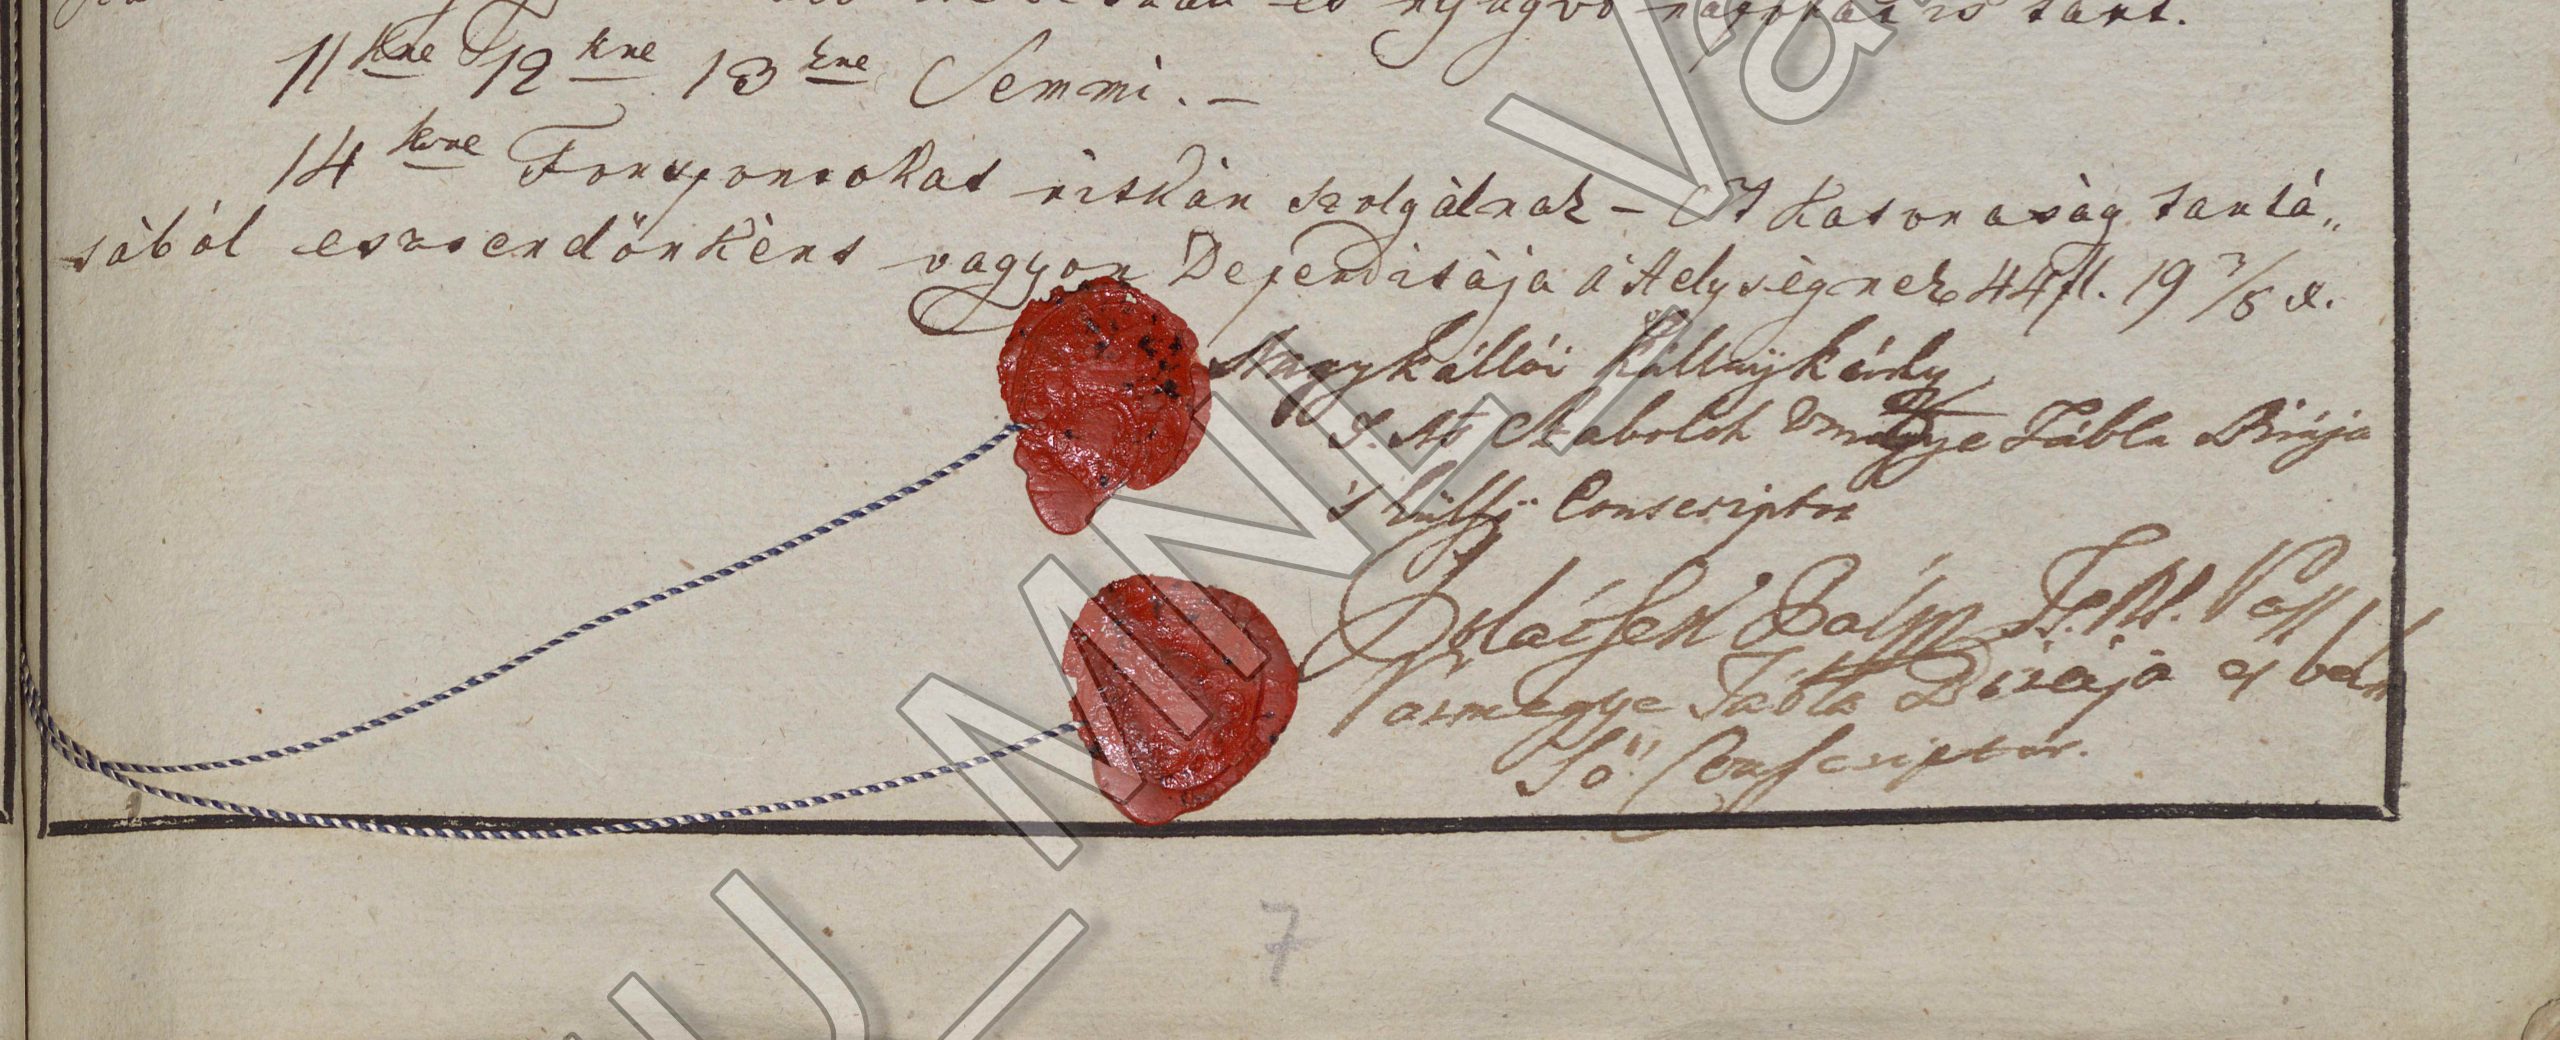 és nyúgvó is tart.
11kne 12kne 13kne Semmi. –
14kne Forsponsokat ritkán szolgálnak – A Katonaság tartá„
sából esztendőnként vagyon Deperditája á Helységnek 44 fl. 19 7/8 x.
Nagykállói Kállaÿ Károly
T. Ns Szabolch Vmegye Tábla Birája
's külsö Conscriptor
Bálm T. N.
Vármegye Tábla Birája es bels
Sö Conscriptor.
7
HU_MNL_Va